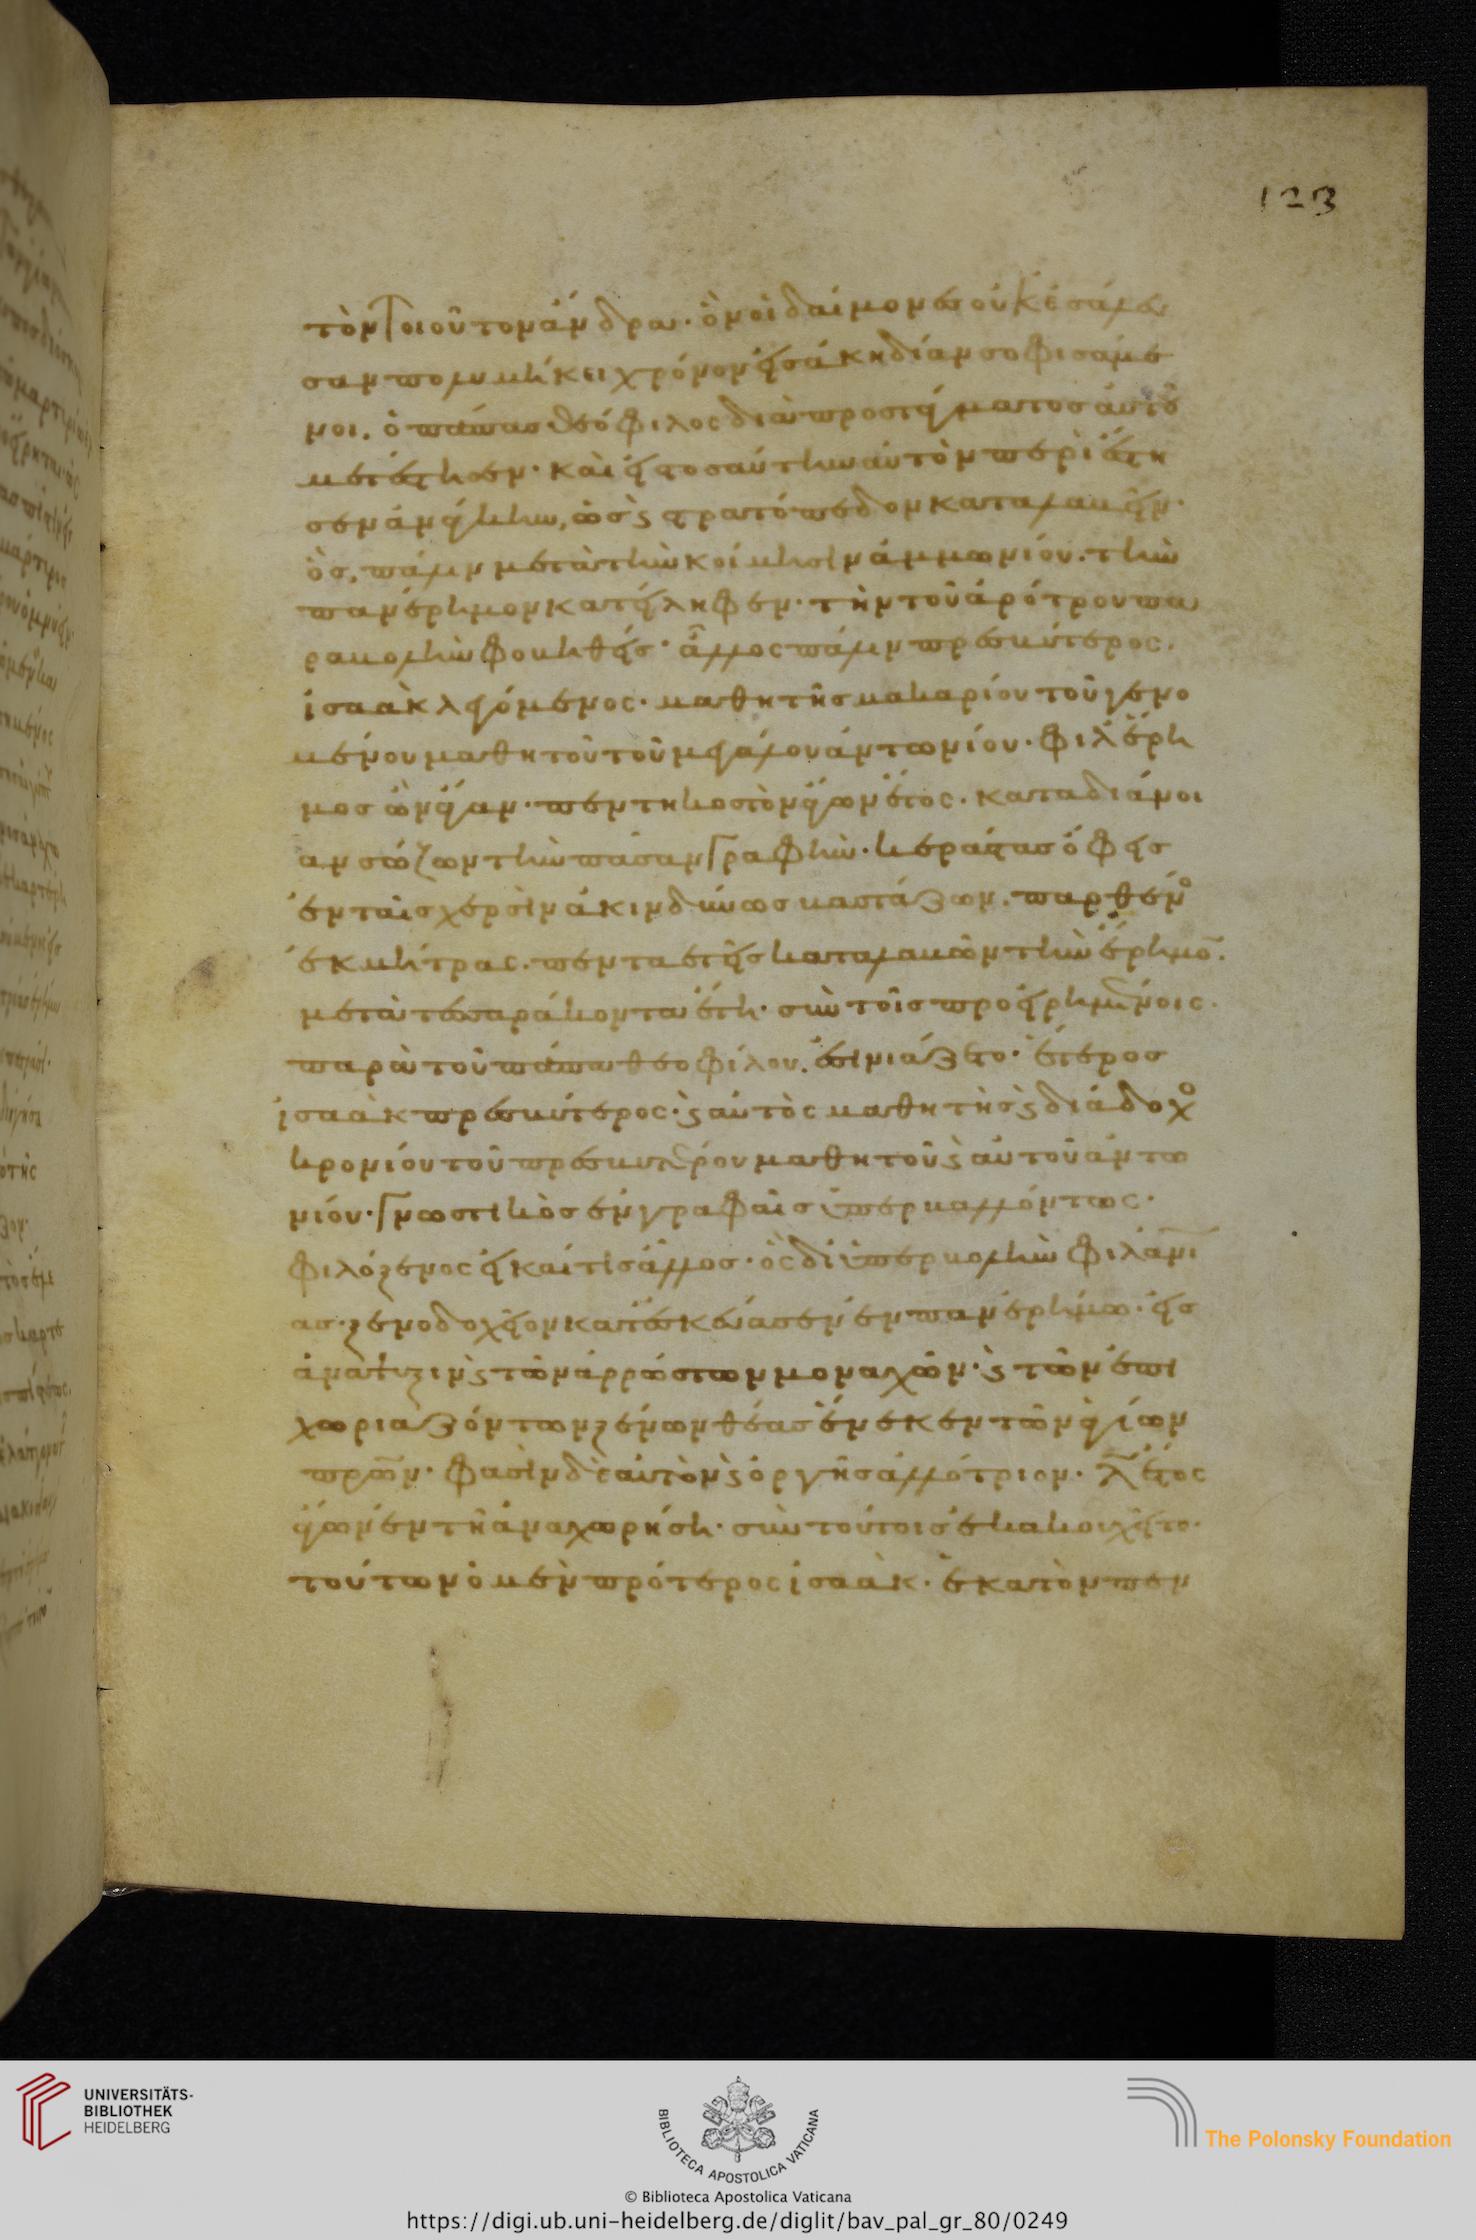 123
τὸν τοιοῦτον ἄνδρα· ὃν οἱ δαίμονες οὐκ ἐσάλευ
σαν πολυμήκει χρόνον εἰς ἀκηδίαν σοφισάμε
νοι. ὁ πάπας θεόφιλος διὰ προστάγματος αὐτοῦ
μετέστησεν· καὶ εἰς τοσαύτην αὐτὸν περιέστη
σεν ἀνάγκην, ὡς ϗ στρατόπεδον καταλαβεῖν·
ὃς, πάλιν μετὰ τὴν κοίμησιν ἀμμωνίου. τὴν
πανέρημον κατείληφεν· τὴν τοῦ ἀρότρου πα
ραβολὴν φοβηθείς· ἄλλος πάλιν πρεσβύτερος.
ἰσαὰκ λεγόμενος· μαθητὴς μακαρίου τοῦ γενο
μένου μαθητοῦ τοῦ μεγάλου ἀντωνίου· φιλέρη
μος ὢν ἄγαν· πεντηκοστὸν ἄγων ἔτος. κατὰ διάνοι
αν σώζων τὴν πᾶσαν γραφὴν· κεράστας ὄφεις
ἐν ταῖς χερσὶν ἀκινδύνως βαστάζων. παρθένος
ἐκ μήτρας. πενταετὴς καταλαβὼν τὴν ἔρημον.
μετὰ τεσσαράκοντα ἔτη· σὺν τοῖς προειρημένοις.
παρὰ τοῦ πάπα θεοφίλου. ἐσινιάζετο· ἕτερος
ἰσαὰκ πρεσβύτερος· ϗ αὐτὸς μαθητὴς ϗ διάδοχος
κρονίου τοῦ πρεσβυτέρου μαθητοῦ ϗ αὐτοῦ ἀντω
νίου· γνωστικὸς ἐν γραφαῖς ὑπερβαλλόντως·
φιλόξενος εἰ καί τις ἄλλος· ὃς δι' ὑπερβολὴν φιλανθρωπί
ας. ξενοδοχεῖον κατεσκεύασεν ἐν πανερήμω· εἰς
ἀνάψυξιν ϗ τῶν ἀρρώστων μοναχῶν· ϗ τῶν ἐπι
χωριαζόντων ξένων θέας ἕνεκεν τῶν ἁγίων
πρων· φασὶν δὲ αὐτὸν ϗ ὀργῆς ἀλλότριον· λ ἔτος
ἄγων ἐν τῆ ἀναχωρήσει· σὺν τούτοις ἐκακουχεῖτο·
τούτων ὁ μὲν πρότερος ἰσαὰκ· ἑκατὸν πεν
UNIVERSITÄTS-
BIBLIOTHEK
HEIDELBERG
BIBLIOTECA APOSTOLICA VATICANA
The Polonsky Foundation
© Biblioteca Apostolica Vaticana
https://digi.ub.uni-heidelberg.de/diglit/bav_pal_gr_80/0249